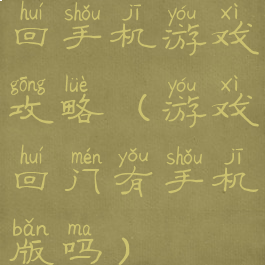 huí shǒu jī yóu xì
回手机游戏
gōng lüè yóu xì
攻略（游戏
huí mén yǒu shǒu jī
回门有手机
bǎn ma
版吗）